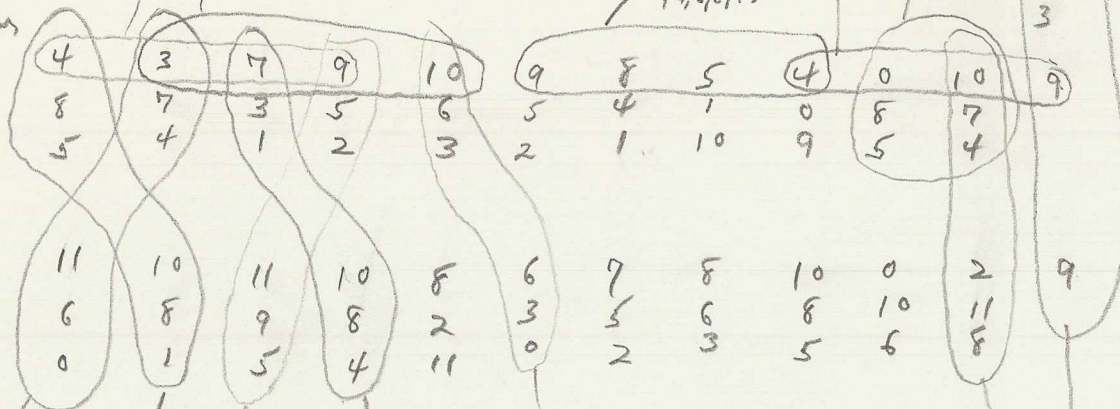 3
4 3 7 9 10 9 8 5 4 0 10 9
8 7 3 5 6 5 4 1 0 8 7
5 4 1 2 3 2 1 10 9 5 4
11 10 11 10 8 6 7 8 10 0 2 9
6 8 9 8 2 3 5 6 8 10 11
0 1 5 4 11 0 2 3 5 6 8